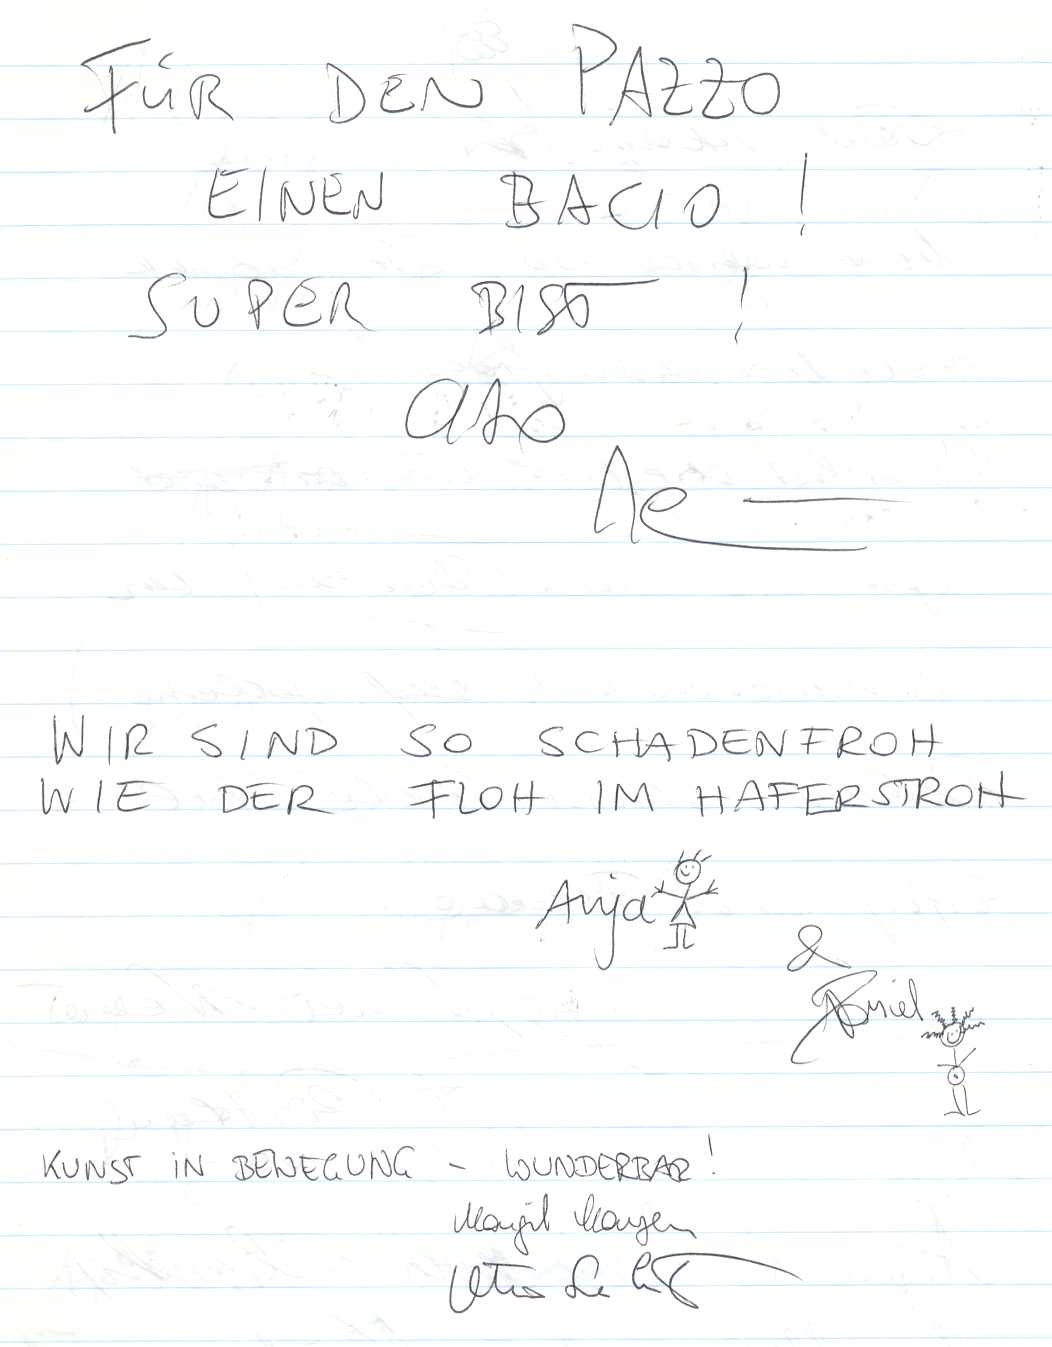 FÜR DEN PAZZO
EINEN BACIO!
SUPER BIST!
WIR SIND SO SCHADENFROH
WIE DER FLOH IM HAFERSTROH
Anja
&
KUNST IN BEWEGUNG - WUNDERBAR!
Margit